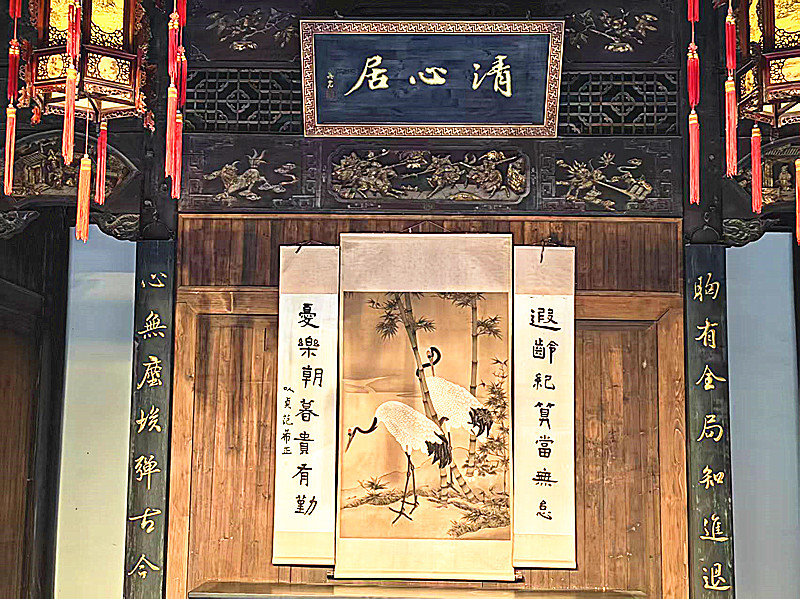 清心居
胸有全局知進退
心無塵埃彈古今
遐齡紀算當無怠
憂樂朝暮貴有勤